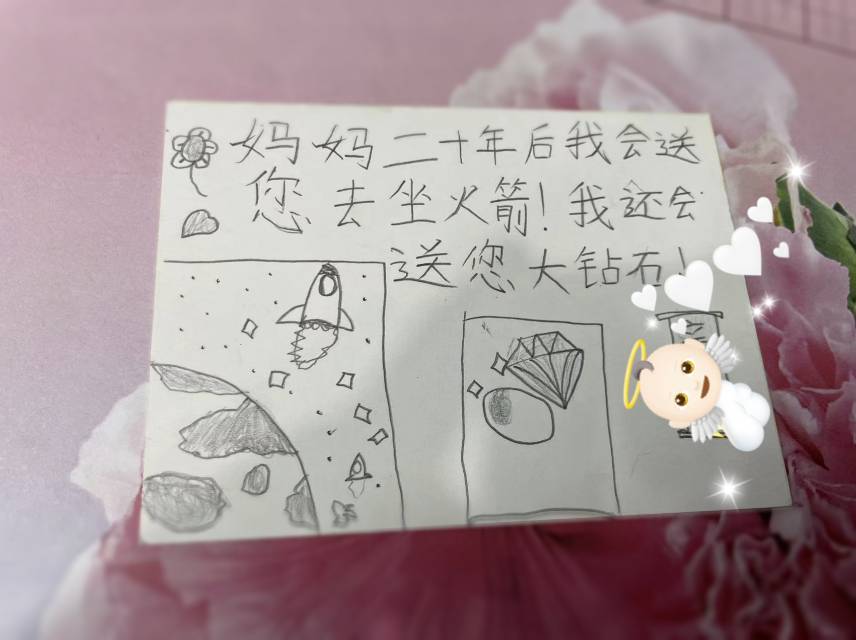 妈妈二十年后我会送
您去坐火箭！我还会
送您大钻石！